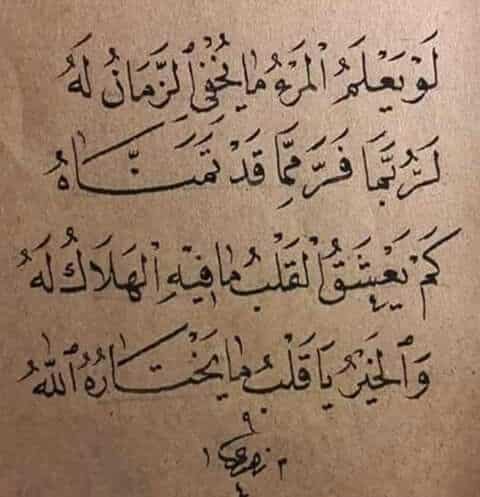 لَوْ يَعْلَمُ الْمَرْءُ مَا يُخْفِي ٱلزَّمَانُ لَهُ
لَرُبَّمَا فَرَّ مِمَّا قَدْ تَمَنَّاهُ
كَمْ يَعْشَقُ الْقَلْبُ مَا فِيْهِ الْهَلَاكُ لَهُ
وَٱلْخَيْرُ يَا قَلْبُ مَا يَخْتَارُهُ ٱللّٰهُ